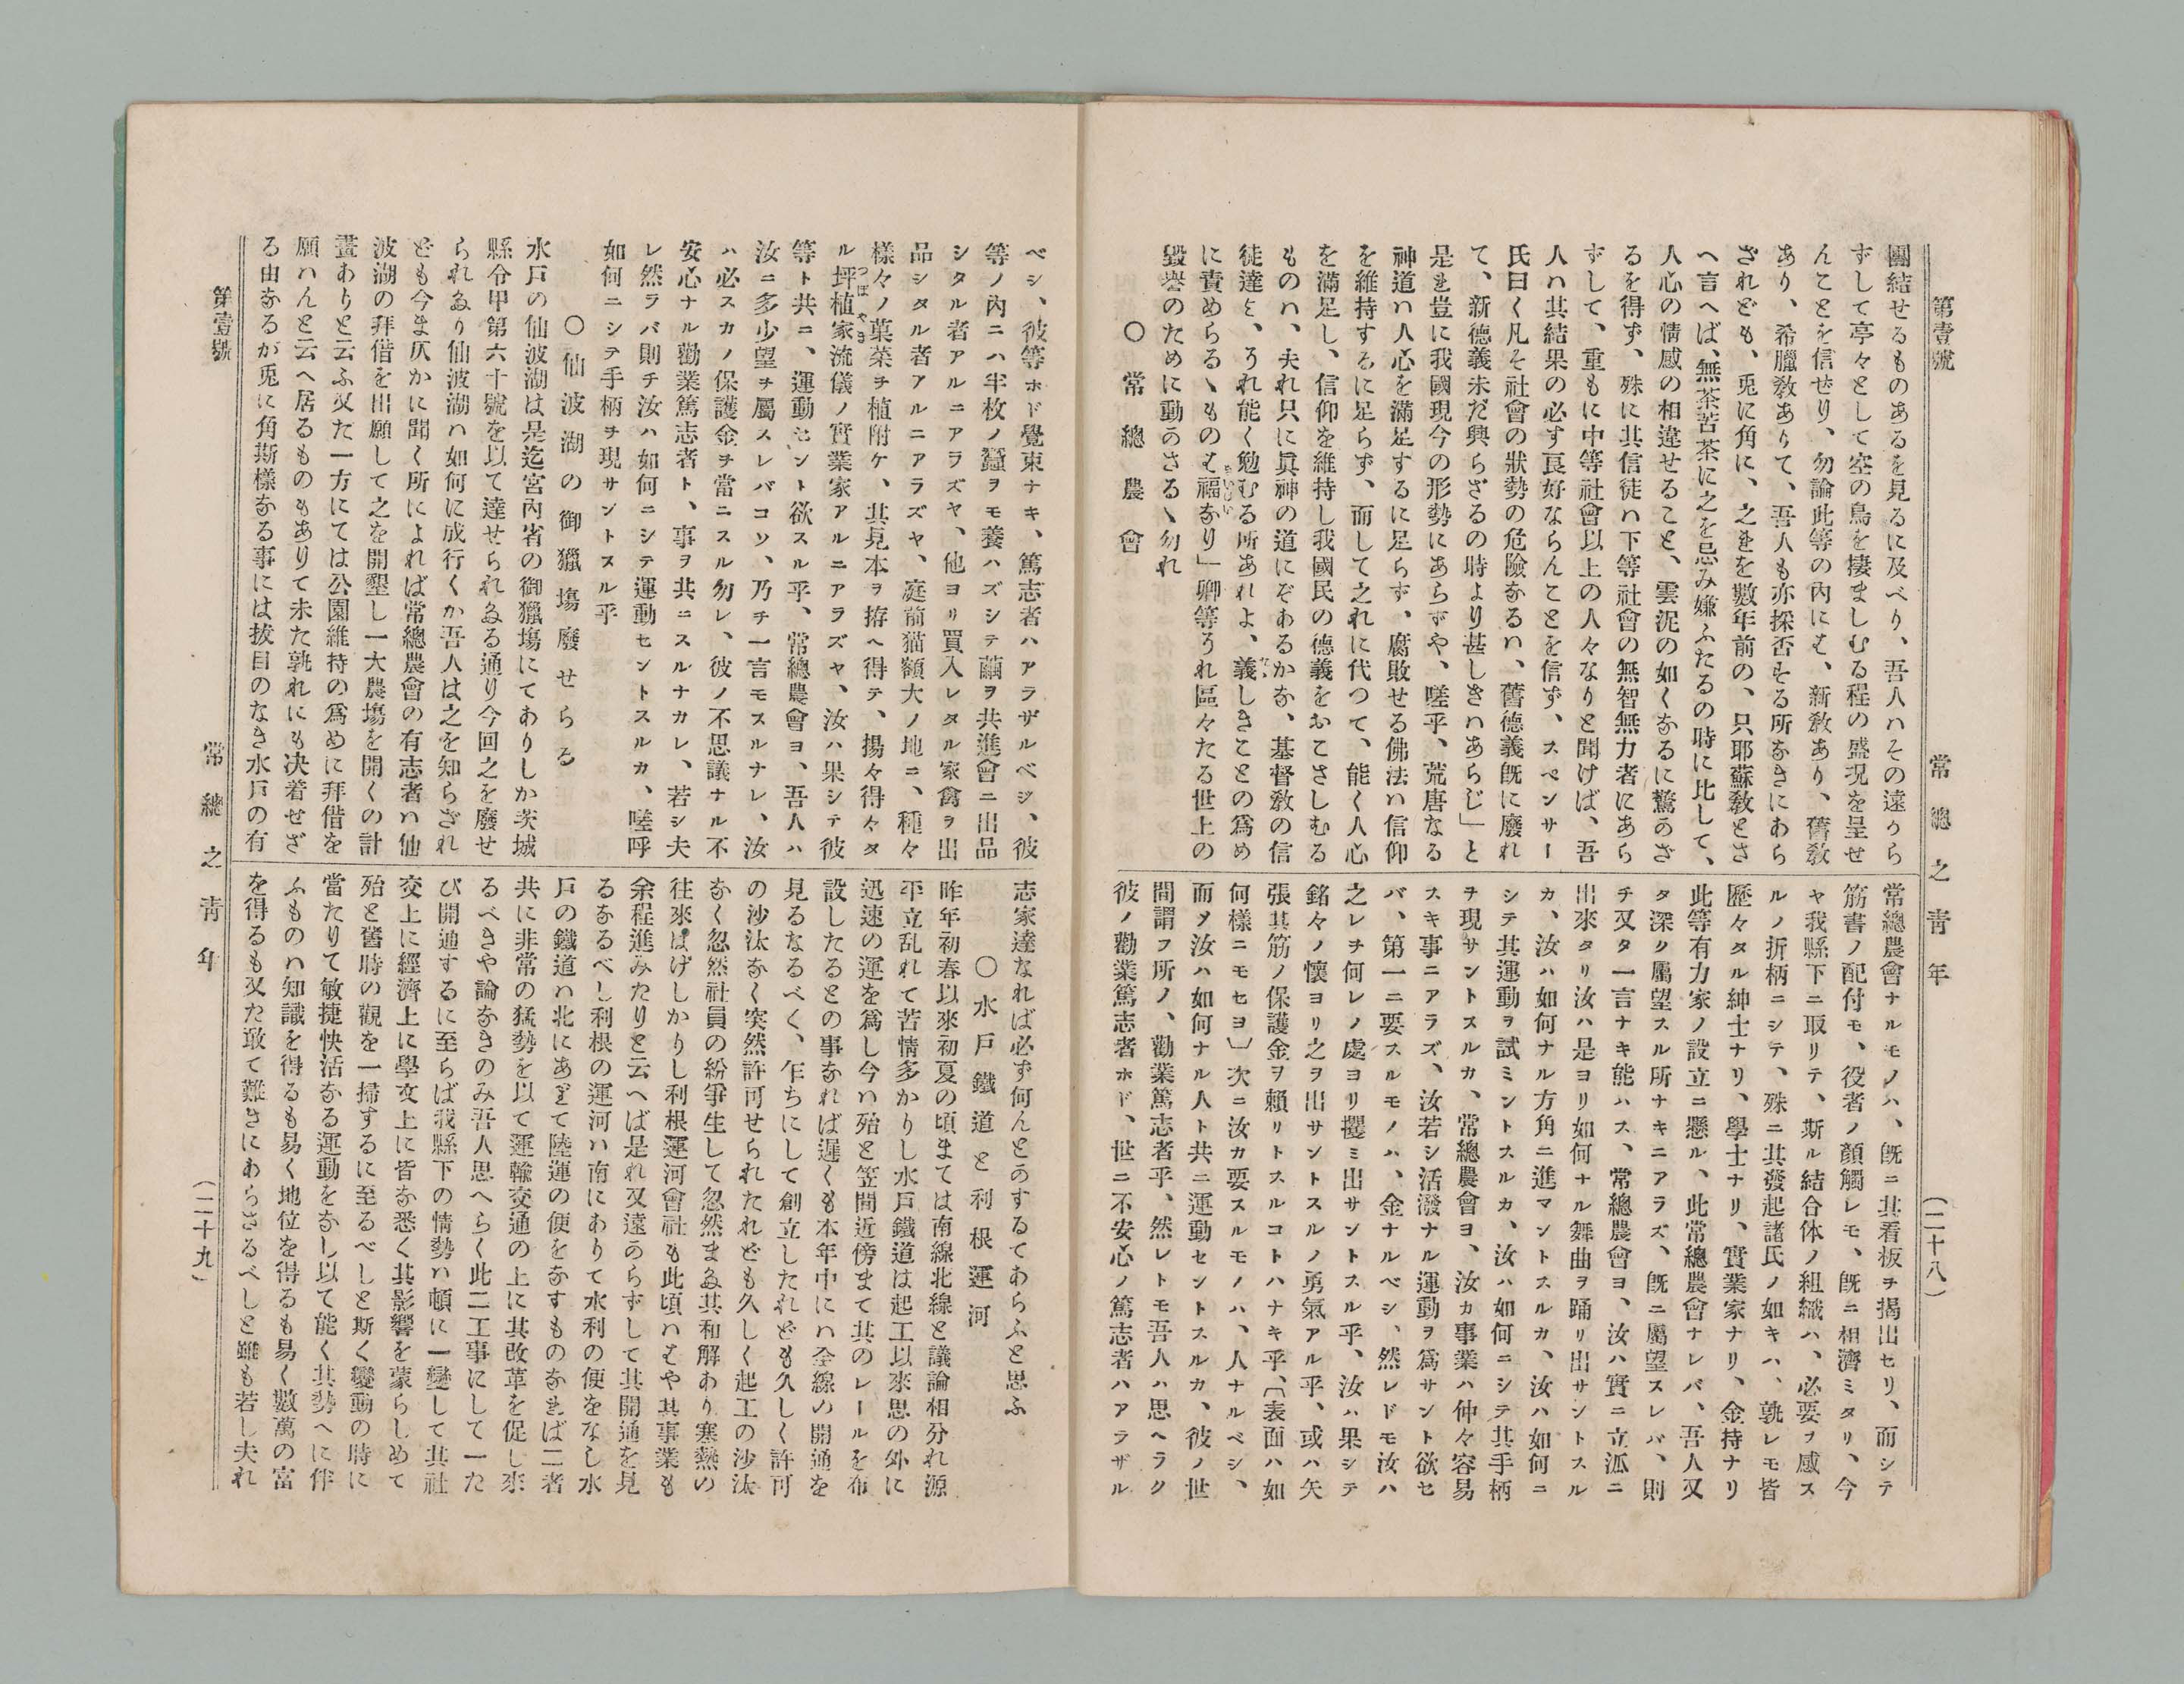 第壹號
常總之靑年
(二十八)
團結せるものあるを見るに及べり、吾人ハその遠からら
ずして亭々として空の鳥を棲ましむる程の盛况を呈せ
んことを信せり、勿論此等の内にも、新敎あり、舊敎
あり、希臘敎ありて、吾人も亦採否する所なきにあら
ざれども、兎に角に、之れを數年前の、只耶蘇敎とさ
へ言へば、無茶苦茶に之を忌み嫌ふたるの時に比して、
人心の情感の相違せること、雲泥の如くなるに驚かざ
るを得ず、殊に其信徒ハ下等社會の無智無力者にあら
ずして、重もに中等社會以上の人々なりと聞けば、吾
人ハ其結果の必す良好ならんことを信ず、スペンサー
氏曰く凡そ社會の狀勢の危險なるハ、舊德義旣に廢れ
て、新德義未だ興らざるの時より甚しきハあらじ」と
是れ豈に我國現今の形勢にあらずや、嗟乎、荒唐なる
神道ハ人心を滿足するに足らず、腐敗せる佛法ハ信仰
を維持するに足らず、而して之れに代つて、能く人心
を滿足し、信仰を維持し我國民の德義をおこさしむる
ものハ、夫れ只に眞神の道にぞあるかな、基督敎の信
徒達よ、うれ能く勉むる所あれよ、義しきことの爲め
に責めらるゝものも福なり」卿等うれ區々たる世上の
毀譽のために動かさるゝ勿れ
○常總農會
常總農會ナルモノハ、旣ニ其看板ヲ揭出セリ、而シテ
筋書ノ配付モ、役者ノ顔觸レモ、旣ニ相濟ミタリ、今
ヤ我縣下ニ取リテ、斯ル結合体ノ組織ハ、必要ヲ感ス
ルノ折柄ニシテ、殊ニ其發起諸氏ノ如キハ、孰レモ皆
歷々タル紳士ナリ、學士ナリ、實業家ナリ、金持ナリ
此等有力家ノ設立ニ懸ル、此常總農會ナレバ、吾人又
タ深ク屬望スル所ナキニアラズ、旣ニ屬望スレバ、則
チ又タ一言ナキ能ハス、常總農會ヨ、汝ハ實ニ立派ニ
出來タリ汝ハ是ヨリ如何ナル舞曲ヲ踊リ出サントスル
カ、汝ハ如何ナル方角ニ進マントスルカ、汝ハ如何ニ
シテ其運動ヲ試ミントスルカ、汝ハ如何ニシテ其手柄
ヲ現サントスルカ、常總農會ヨ、汝カ事業ハ仲々容易
スキ事ニアラズ、汝若シ活潑ナル運動ヲ爲サント欲セ
バ、第一ニ要スルモノハ、金ナルベシ、然レドモ汝ハ
之レヲ何レノ處ヨリ攫ミ出サントスル乎、汝ハ果シテ
銘々ノ懷ヨリ之ヲ出サントスルノ勇氣アル乎、或ハ矢
張其筋ノ保護金ヲ賴リトスルコトハナキ乎、〔表面ハ如
何樣ニモセヨ〕次ニ汝カ要スルモノハ、人ナルベシ、
而ヲ汝ハ如何ナル人ト共ニ運動セントスルカ、彼ノ世
間謂フ所ノ、勸業篤志者乎、然レトモ吾人ハ思ヘラク
彼ノ勸業篤志者ホド、世ニ不安心ノ篤志者ハアラザル
ベシ、彼等ホド覺束ナキ、篤志者ハアラザルベジ、彼
等ノ内ニハ半枚ノ蠶ヲモ養ハズシテ繭ヲ共進會ニ出品
シタル者アルニアラズヤ、他ヨリ買入レタル家禽ヲ出
品シタル者アルニアラズヤ、庭前猫額大ノ地ニ、種々
樣々ノ菓菜ヲ植附ケ、其見本ヲ拵ヘ得テ、揚々得々タ
ル坪植家流儀ノ實業家アルニアラズヤ、汝ハ果シテ彼
等ト共ニ、運動セント欲スル乎、常總農會ヨ、吾人ハ
汝ニ多少望ヲ屬スレバコソ、乃チ一言モスルナレ、汝
ハ必スカノ保護金ヲ當ニスル勿レ、彼ノ不思議ナル不
安心ナル勸業篤志者ト、事ヲ共ニスルナカレ、若シ夫
レ然ラバ則チ汝ハ如何ニシテ運動セントスルカ、嗟呼
如何ニシテ手柄ヲ現サントスル乎
○仙波湖の御獵塲廢せらる
水戸の仙波湖は是迄宮内省の御獵塲にてありしか茨城
縣令甲第六十號を以て達せられゐる通り今回之を廢せ
られゐり仙波湖ハ如何に成行くか吾人は之を知らざれ
ども今ま仄かに聞く所によれば常總農會の有志者ハ仙
波湖の拜借を出願して之を開墾し一大農塲を開くの計
畫ありと云ふ又た一方にては公園維持の爲めに拜借を
願ハんと云へ居るものもありて未た孰れにも决着せざ
る由なるが兎に角斯樣なる事には拔目のなき水戸の有
志家達なれば必ず何んとかするてあらふと思ふ
○水戸鐵道と利根運河
昨年初春以來初夏の頃まては南線北線と議論相分れ源
平立乱れて苦情多かりし水戸鐵道は起工以來思の外に
迅速の運を爲し今ハ殆と笠間近傍まて其のレールを布
設したるとの事なれば遲くも本年中にハ全線の開通を
見るなるべく、乍ちにして創立したれども久しく許可
の沙汰なく突然許可せられたれども久しく起工の沙汰
なく忽然社員の紛爭生して忽然まゐ其和解あり寒熱の
往來はげしかりし利根運河會社も此頃ハもや其事業も
余程進みたりと云へば是れ又遠からずして其開通を見
るなるべし利根の運河ハ南にありて水利の便をなし水
戸の鐵道ハ北にありて陸運の便をなすものなれば二者
共に非常の猛勢を以て運輸交通の上に其改革を促し來
るべきや論なきのみ吾人思へらく此二工事にして一た
び開通するに至らば我縣下の情勢ハ頓に一變して其社
交上に經濟上に學文上に皆な悉く其影響を蒙らしめて
殆と舊時の觀を一掃するに至るべしと斯く變動の時に
當たりて敏捷快活なる運動をなし以て能く其勢へに伴
ふものハ知識を得るも易く地位を得るも易く數萬の富
を得るも又た敢て難きにあらさるべしと雖も若し夫れ
第壹號
常總之靑年
(二十九)